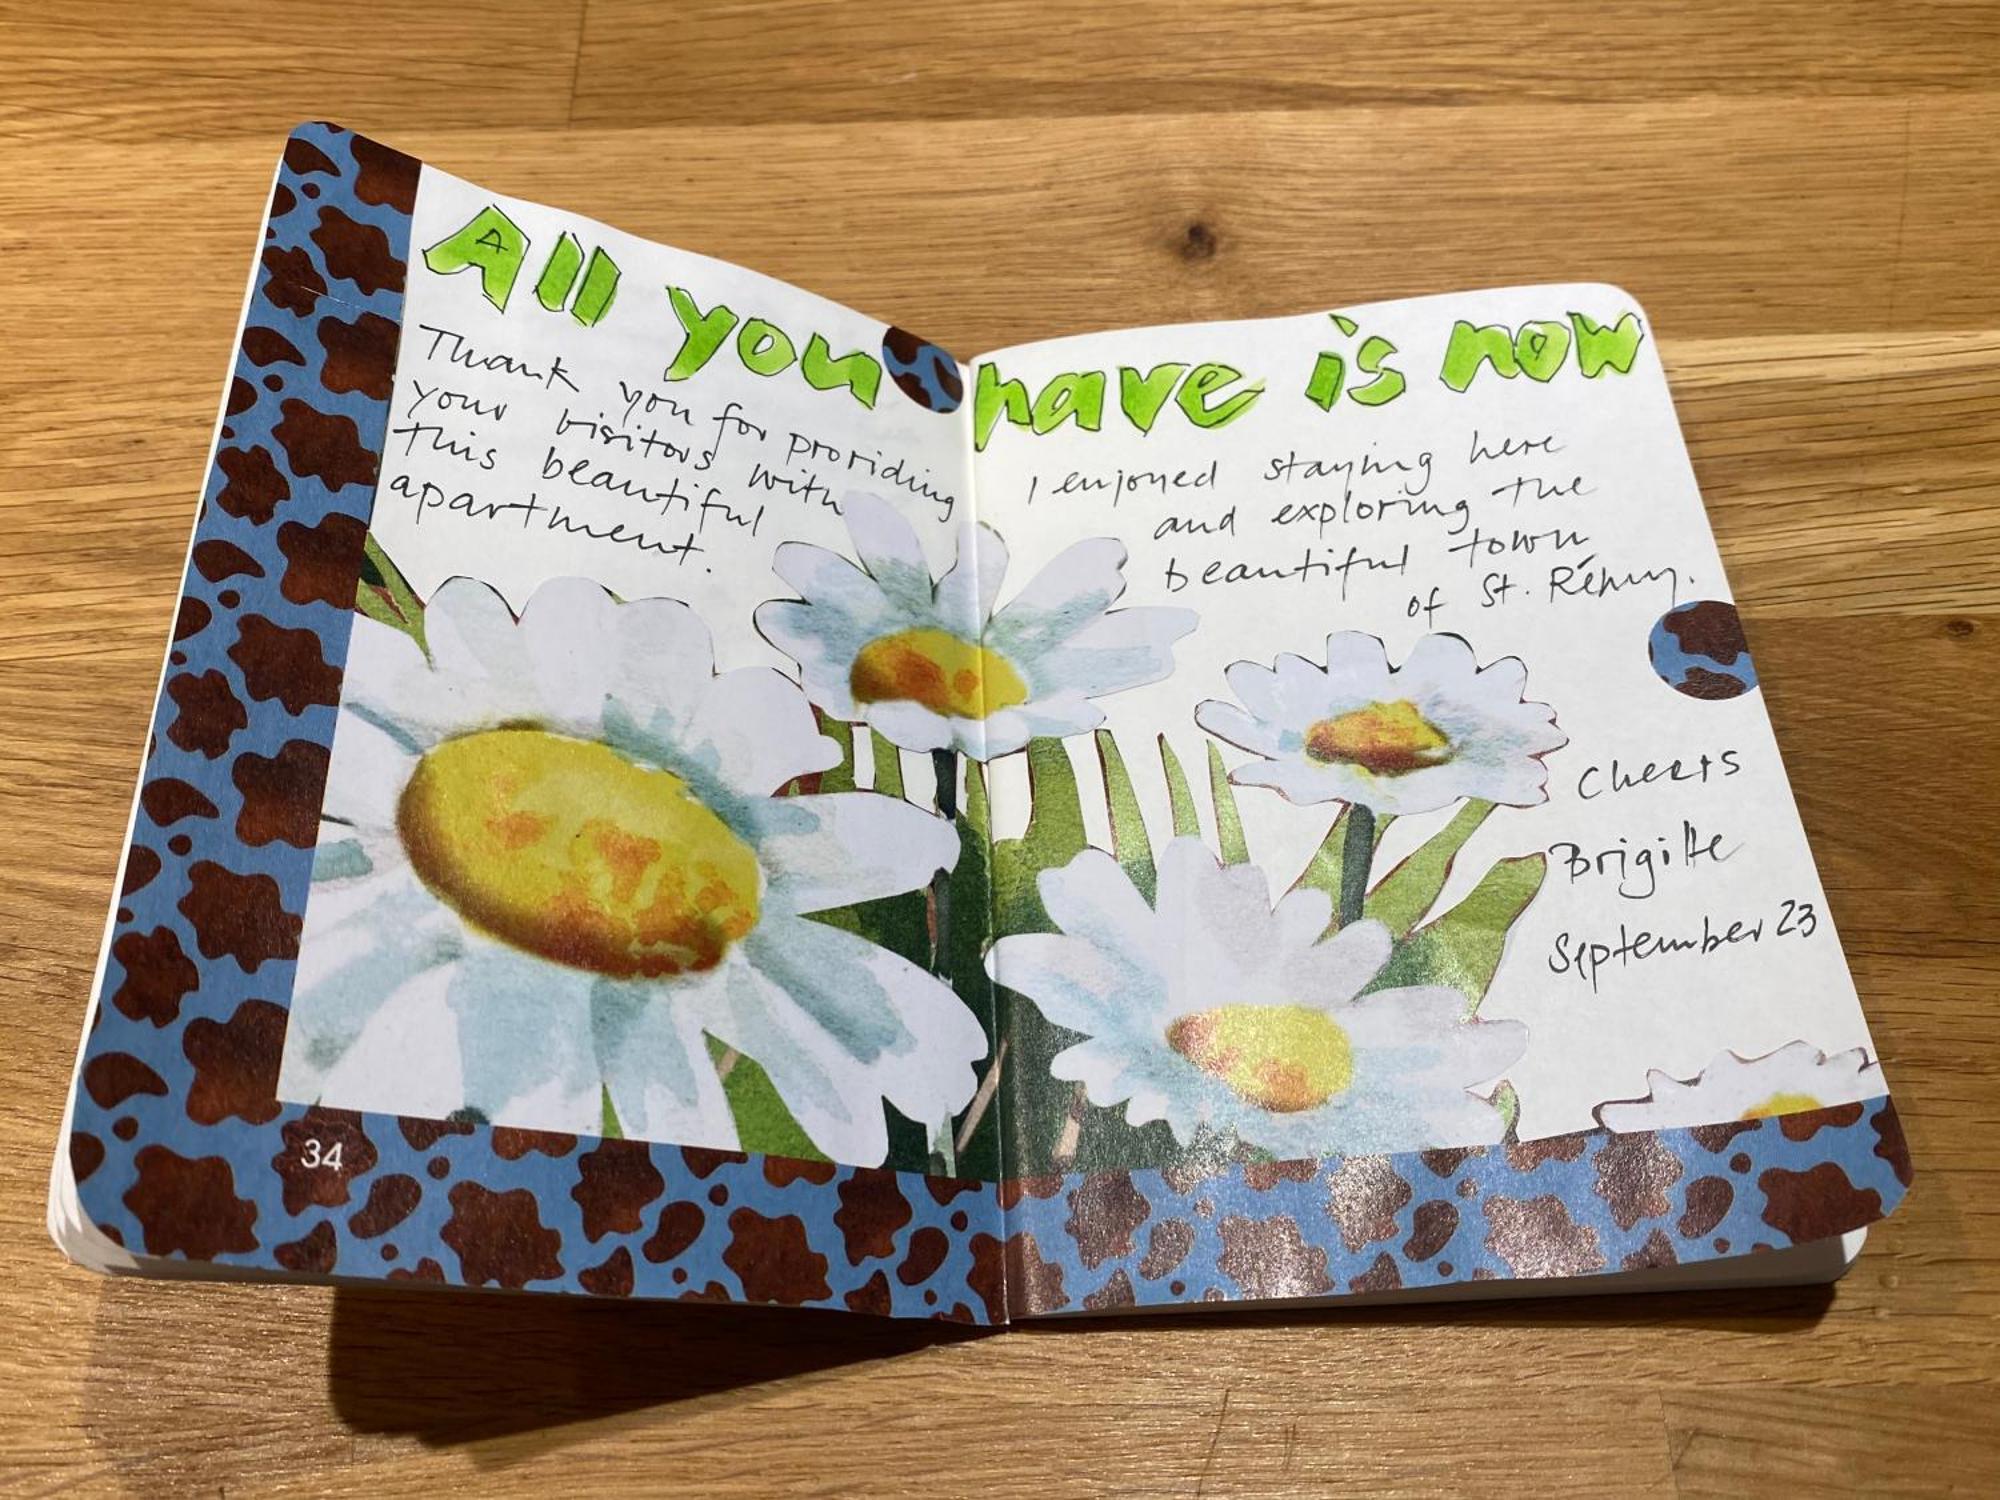 All you have is now
Thank you for providing
your visitors with
this beautiful
apartment.
I enjoyed staying here
and exploring the
beautiful town
of St. Rémy.
Cheers
Brigitte
September 23
34